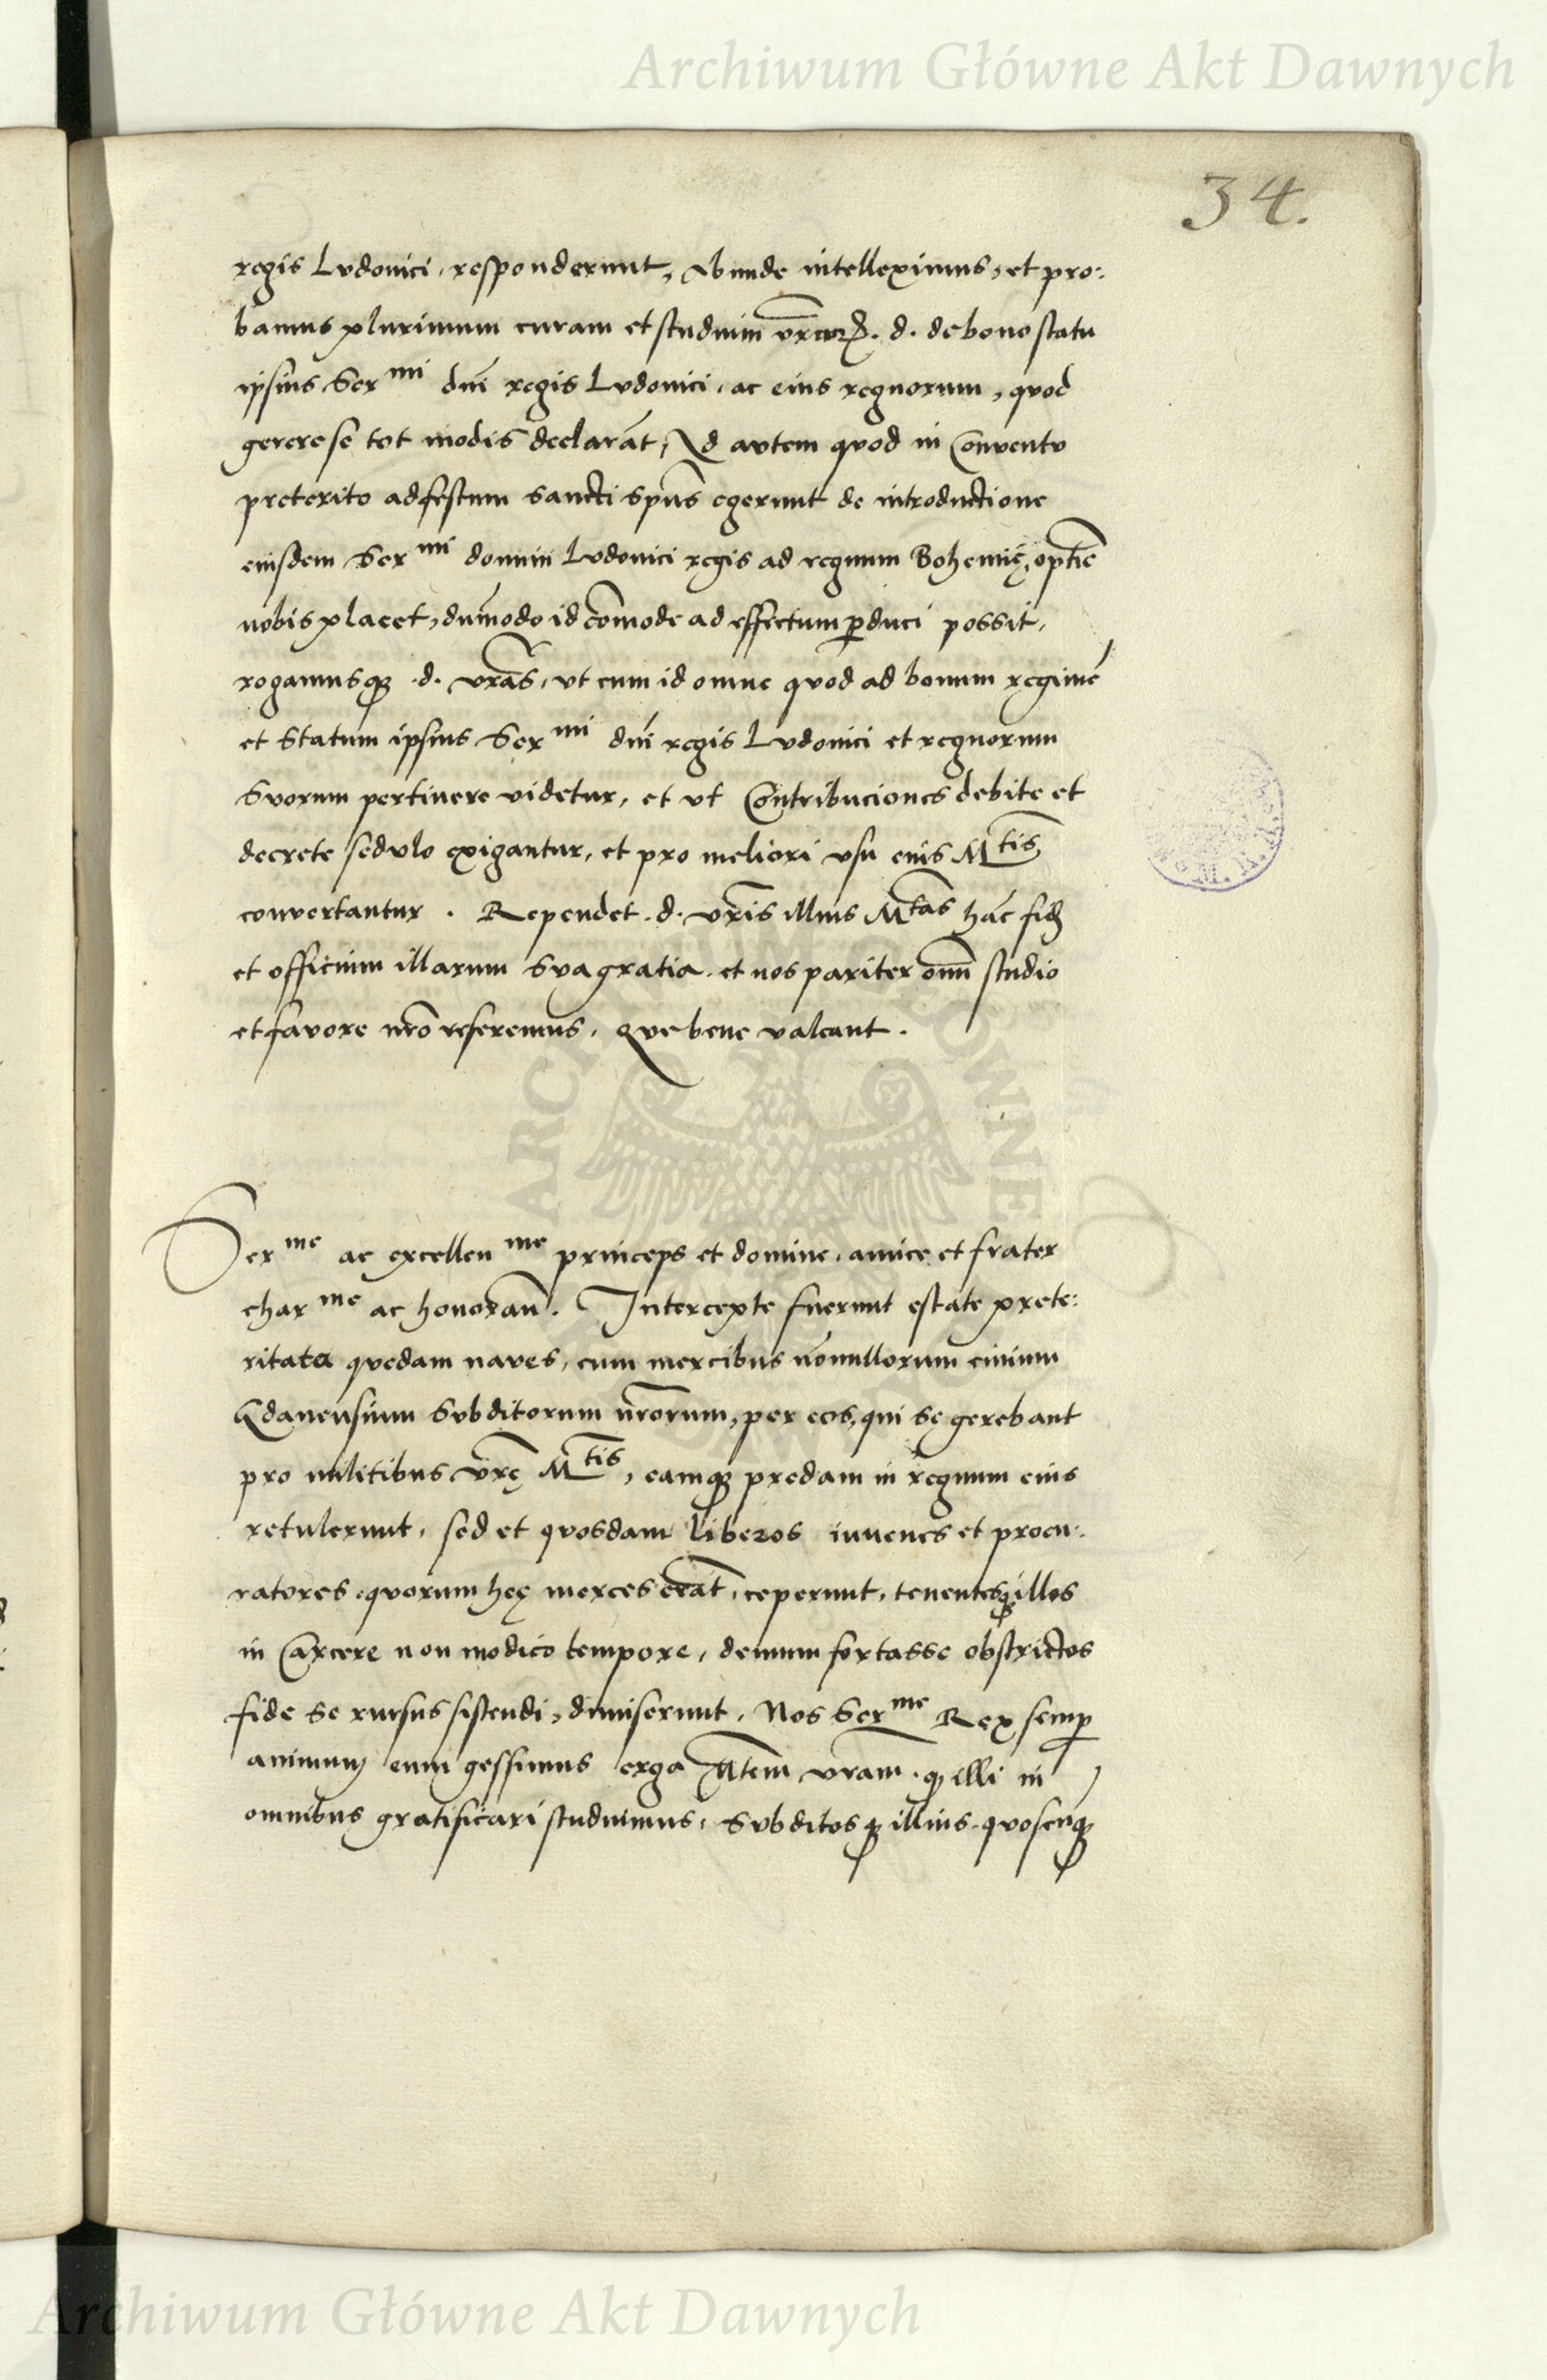 Archiwum Główne Akt Dawnych
34.
regis Ludovici, responderunt, abunde intelleximus, et pro:
bamus plurimum curam et studium vr̄arū. d. de bono statu
ipsius Ser mi dnī regis Ludovici, ac eius regnorum, quod
gerere se tot modis declarāt, Id autem quod in Conventu
preterito ad festum sancti Spūs egerunt de introductione
eiusdem Ser mi domini Ludovici regis ad regnum Bohemię, optīe
nobis placet, dum̄odo id com̄ode ad effectum ꝑduci possit,
rogamusqȝ .d. vrās, ut cum id omne quod ad bonum regimē
et statum ipsius Ser mi dnī regis Ludovici et regnorum
suorum pertinere videtur, et ut Contribuciones debite et
decrete sedulo exigantur, et pro meliori usu eius M tis
convertantur. Rependet .d. vrīs illius M tas hāc fidē
et officium illarum sua gratia. et nos pariter omī studio
et favore nrō referemus, que bene valeant.
Ser me ac excellen me princeps et domine, amice et frater
char me ac honoran̄. Intercepte fuerunt estate prete:
ritata quedam naves, cum mercibus nōnullorum civium
Gdanensium subditorum nrōrum, per eos, qui se gerebant
pro militibus vrę M tis, eamqȝ predam in regnum eius
retulerunt, sed et quosdam liberos iuvenes et procu:
ratores, quorum heę merces erāt, ceperunt, tenentesqȝ illos
in Carcere non modico tempore, demum fortasse obstrictos
fide se rursus sistendi, dimiserunt, Nos Ser me Rex semꝑ
animum eum gessimus erga M̄tem vrām. qȝ illi in
omnibus gratificari studuimus, subditosqȝ illius quoscūqȝ
Archiwum Główne Akt Dawnych